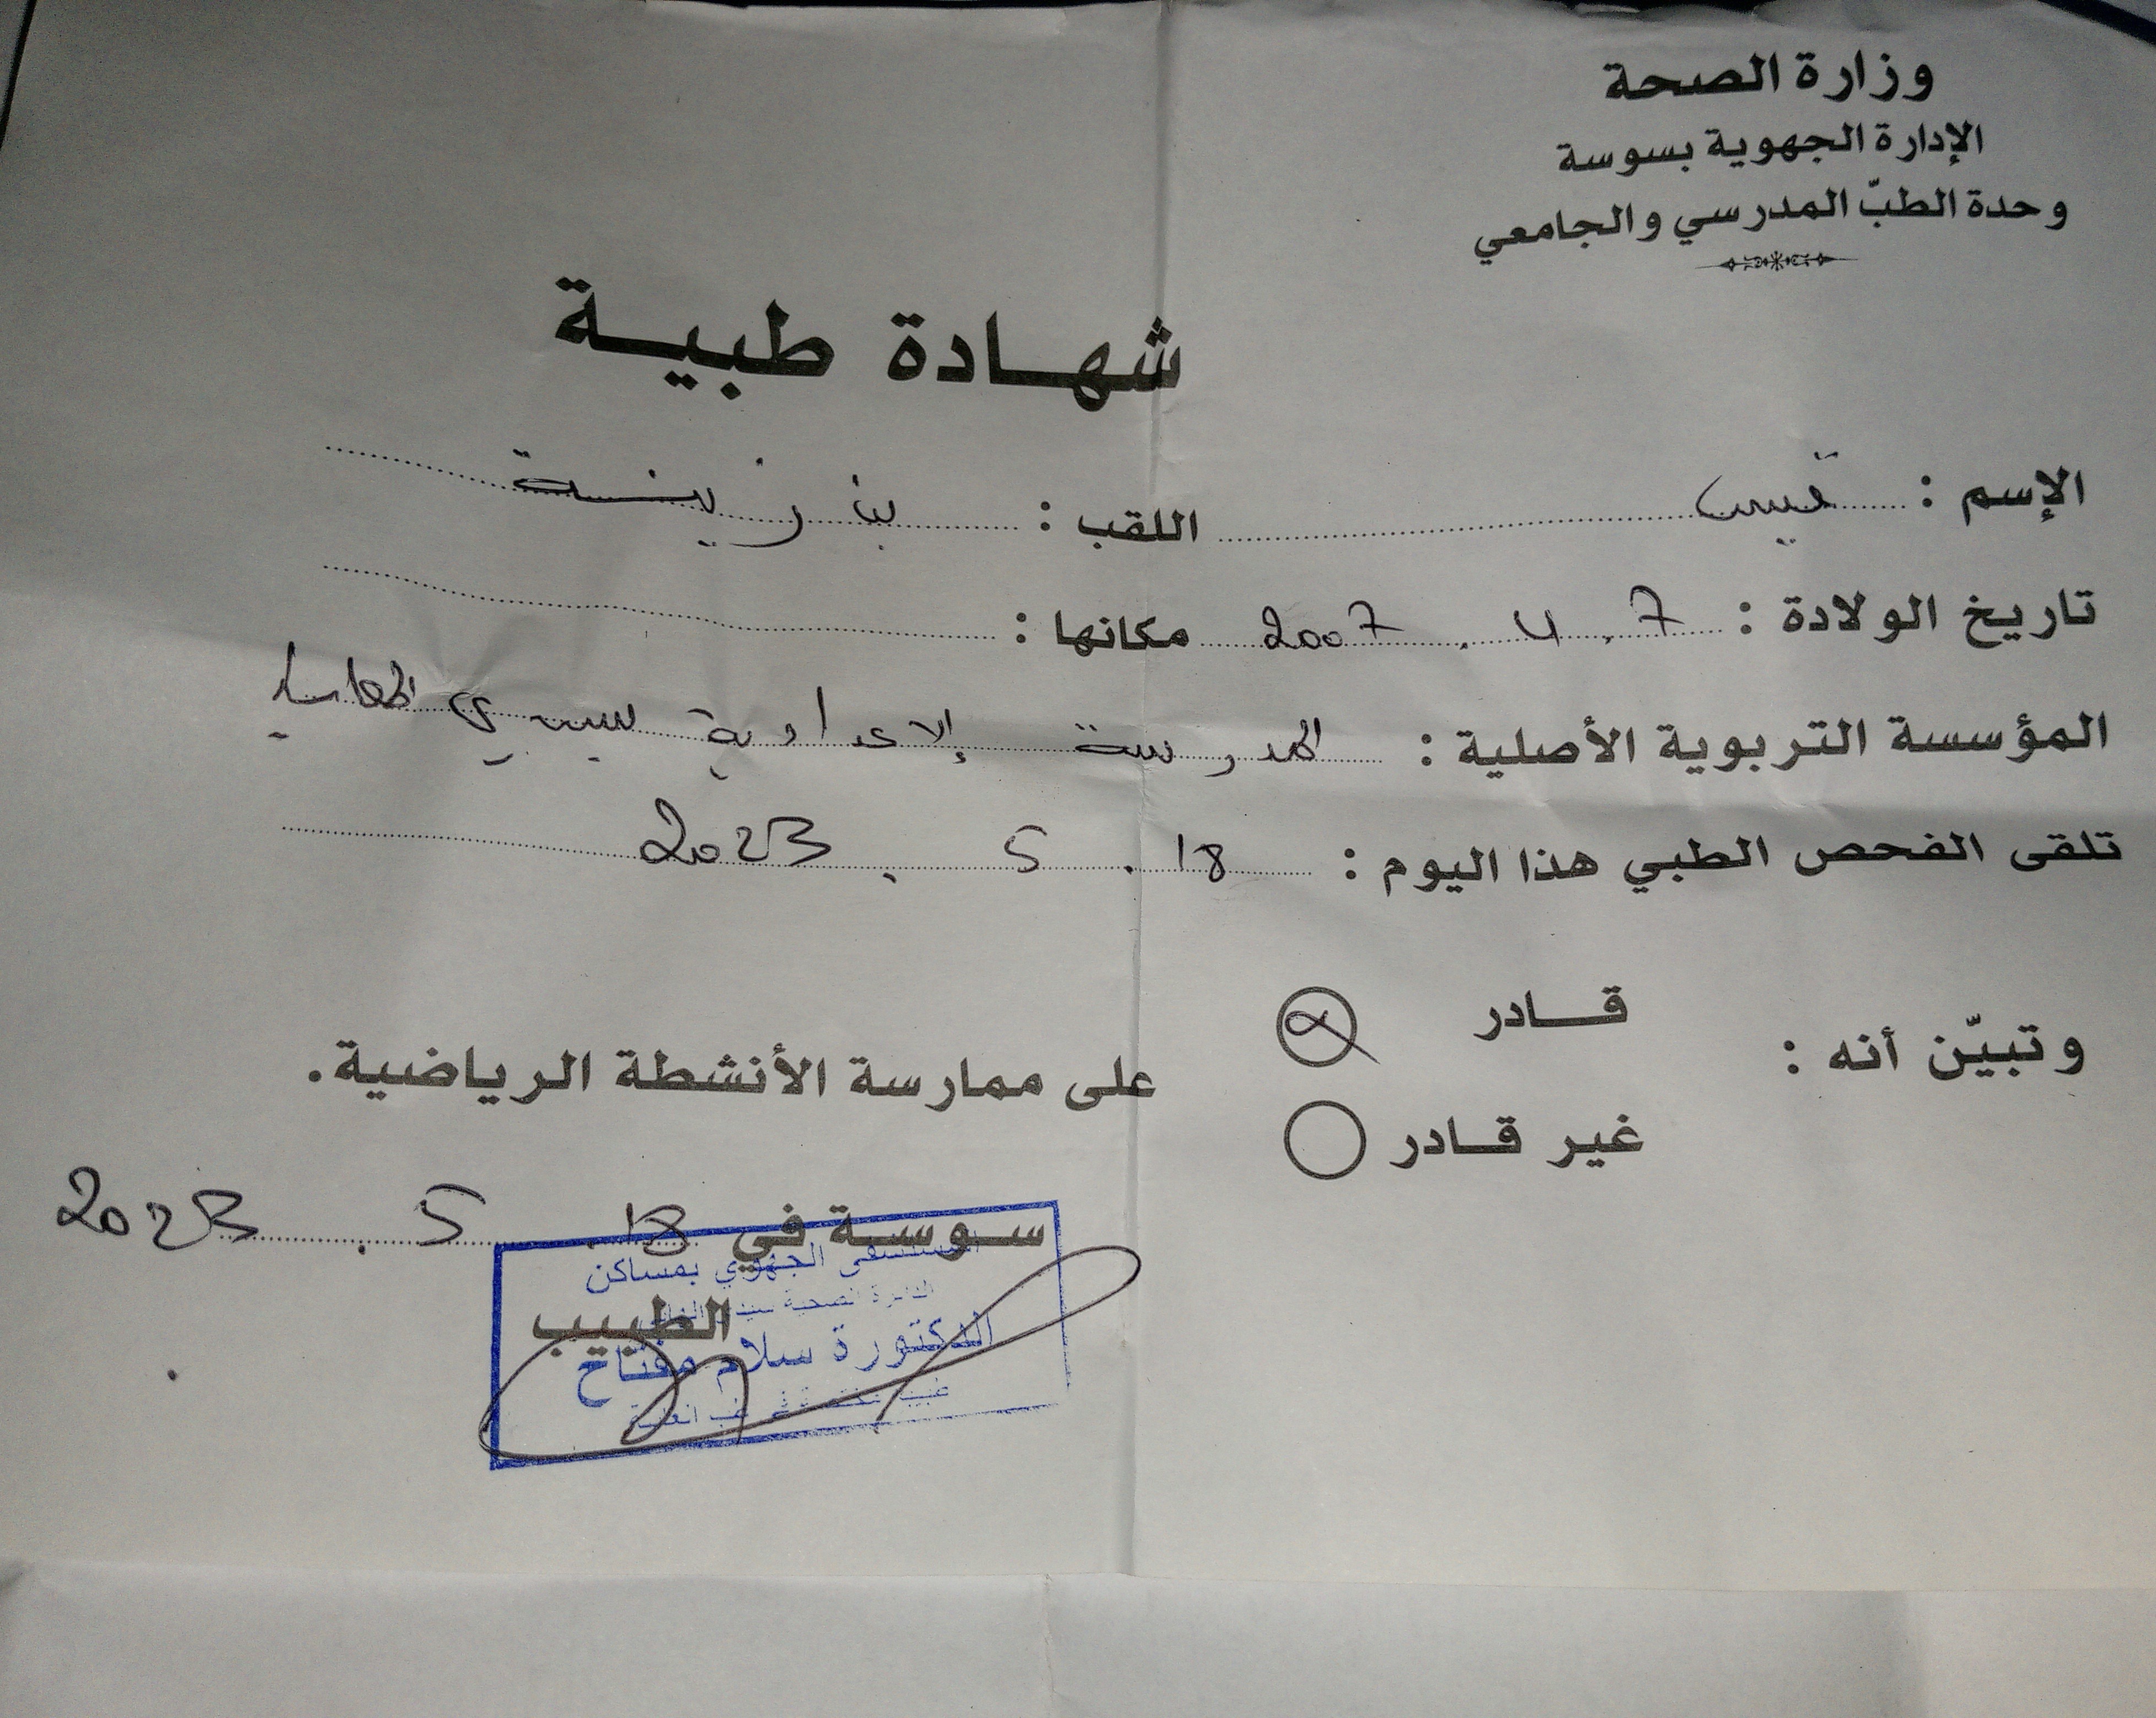 وزارة الصحة
الإدارة الجهوية بسوسة
وحدة الطبّ المدرسي والجامعي
شهادة طبية
الإسم : قيس اللقب : بن زينة
تاريخ الولادة : 7 . 4 . 2007 مكانها :
المؤسسة التربوية الأصلية : المدرسة الإعدادية سيدي
تلقى الفحص الطبي هذا اليوم : 18 . 5 . 2023
وتبيّن أنه : قادر
على ممارسة الأنشطة الرياضية.
غير قادر
سوسة في 18 . 5 . 2023
المستشفى الجهوي بمساكن
الدائرة الصحية
الطبيب
الدكتورة سلام مفتاح